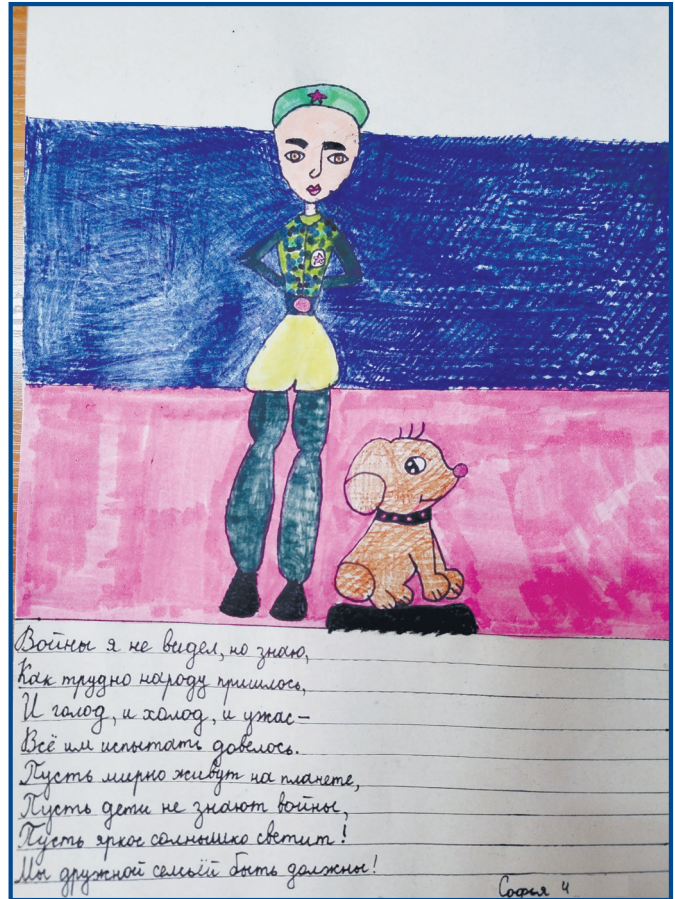 Войны я не видел, но знаю,
Как трудно народу пришлось,
И голод, и холод, и ужас –
Всё им испытать довелось.
Пусть мирно живут на планете,
Пусть дети не знают войны,
Пусть яркое солнышко светит!
Мы дружной семьёй быть должны!
Софья Ч